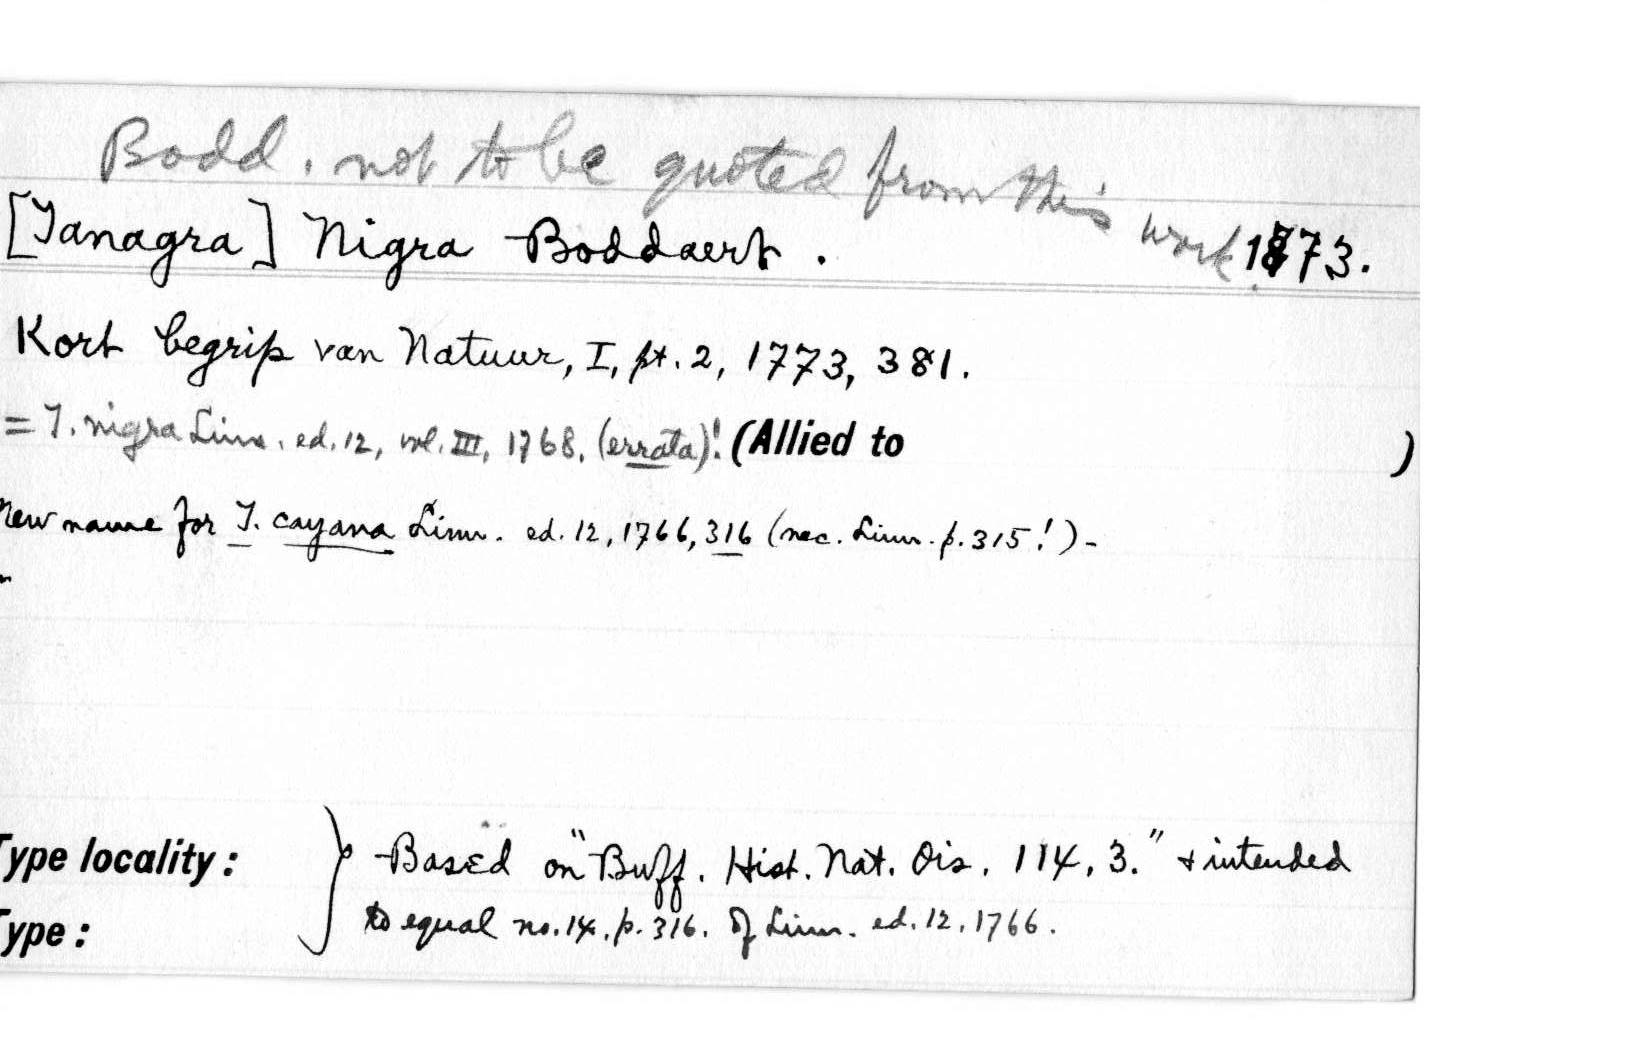 Bodd. not to be quoted from this work
[Tanagra] Nigra Boddaert. 1773.
Kort begrip van Natuur, I, pt. 2, 1773, 381.
= T. nigra Linn. ed. 12, vol. III, 1768, (errata)! (Allied to )
New name for T. cayana Linn. ed. 12, 1766, 316 (nec. Linn. p. 315!) -
Type locality: } Based on "Buff. Hist. Nat. Ois. 114, 3." & intended
Type: to equal no. 14, p. 316. of Linn. ed. 12, 1766.